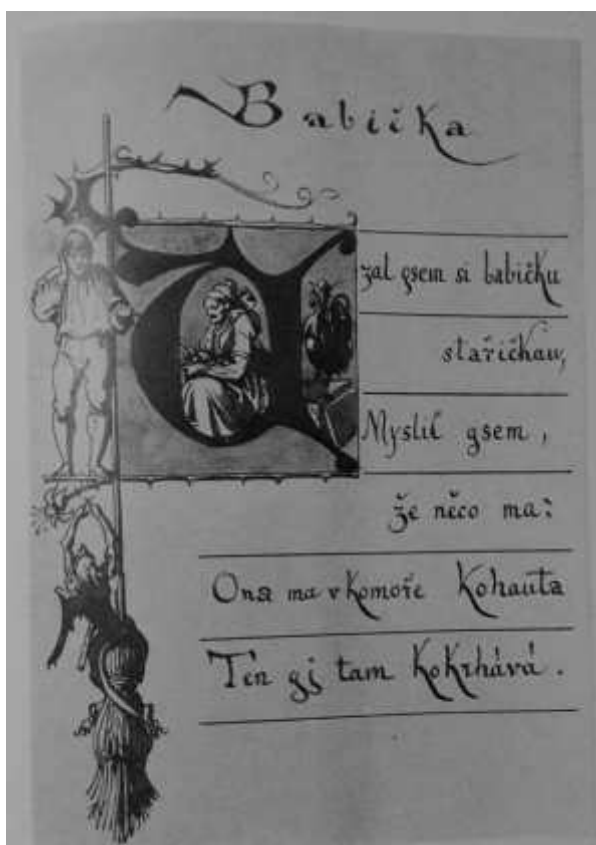 Babička
Vzal gsem si babičku
stařičkau,
Myslil gsem,
že něco ma:
Ona ma v komoře Kohauta
Ten gj tam kokrhává.